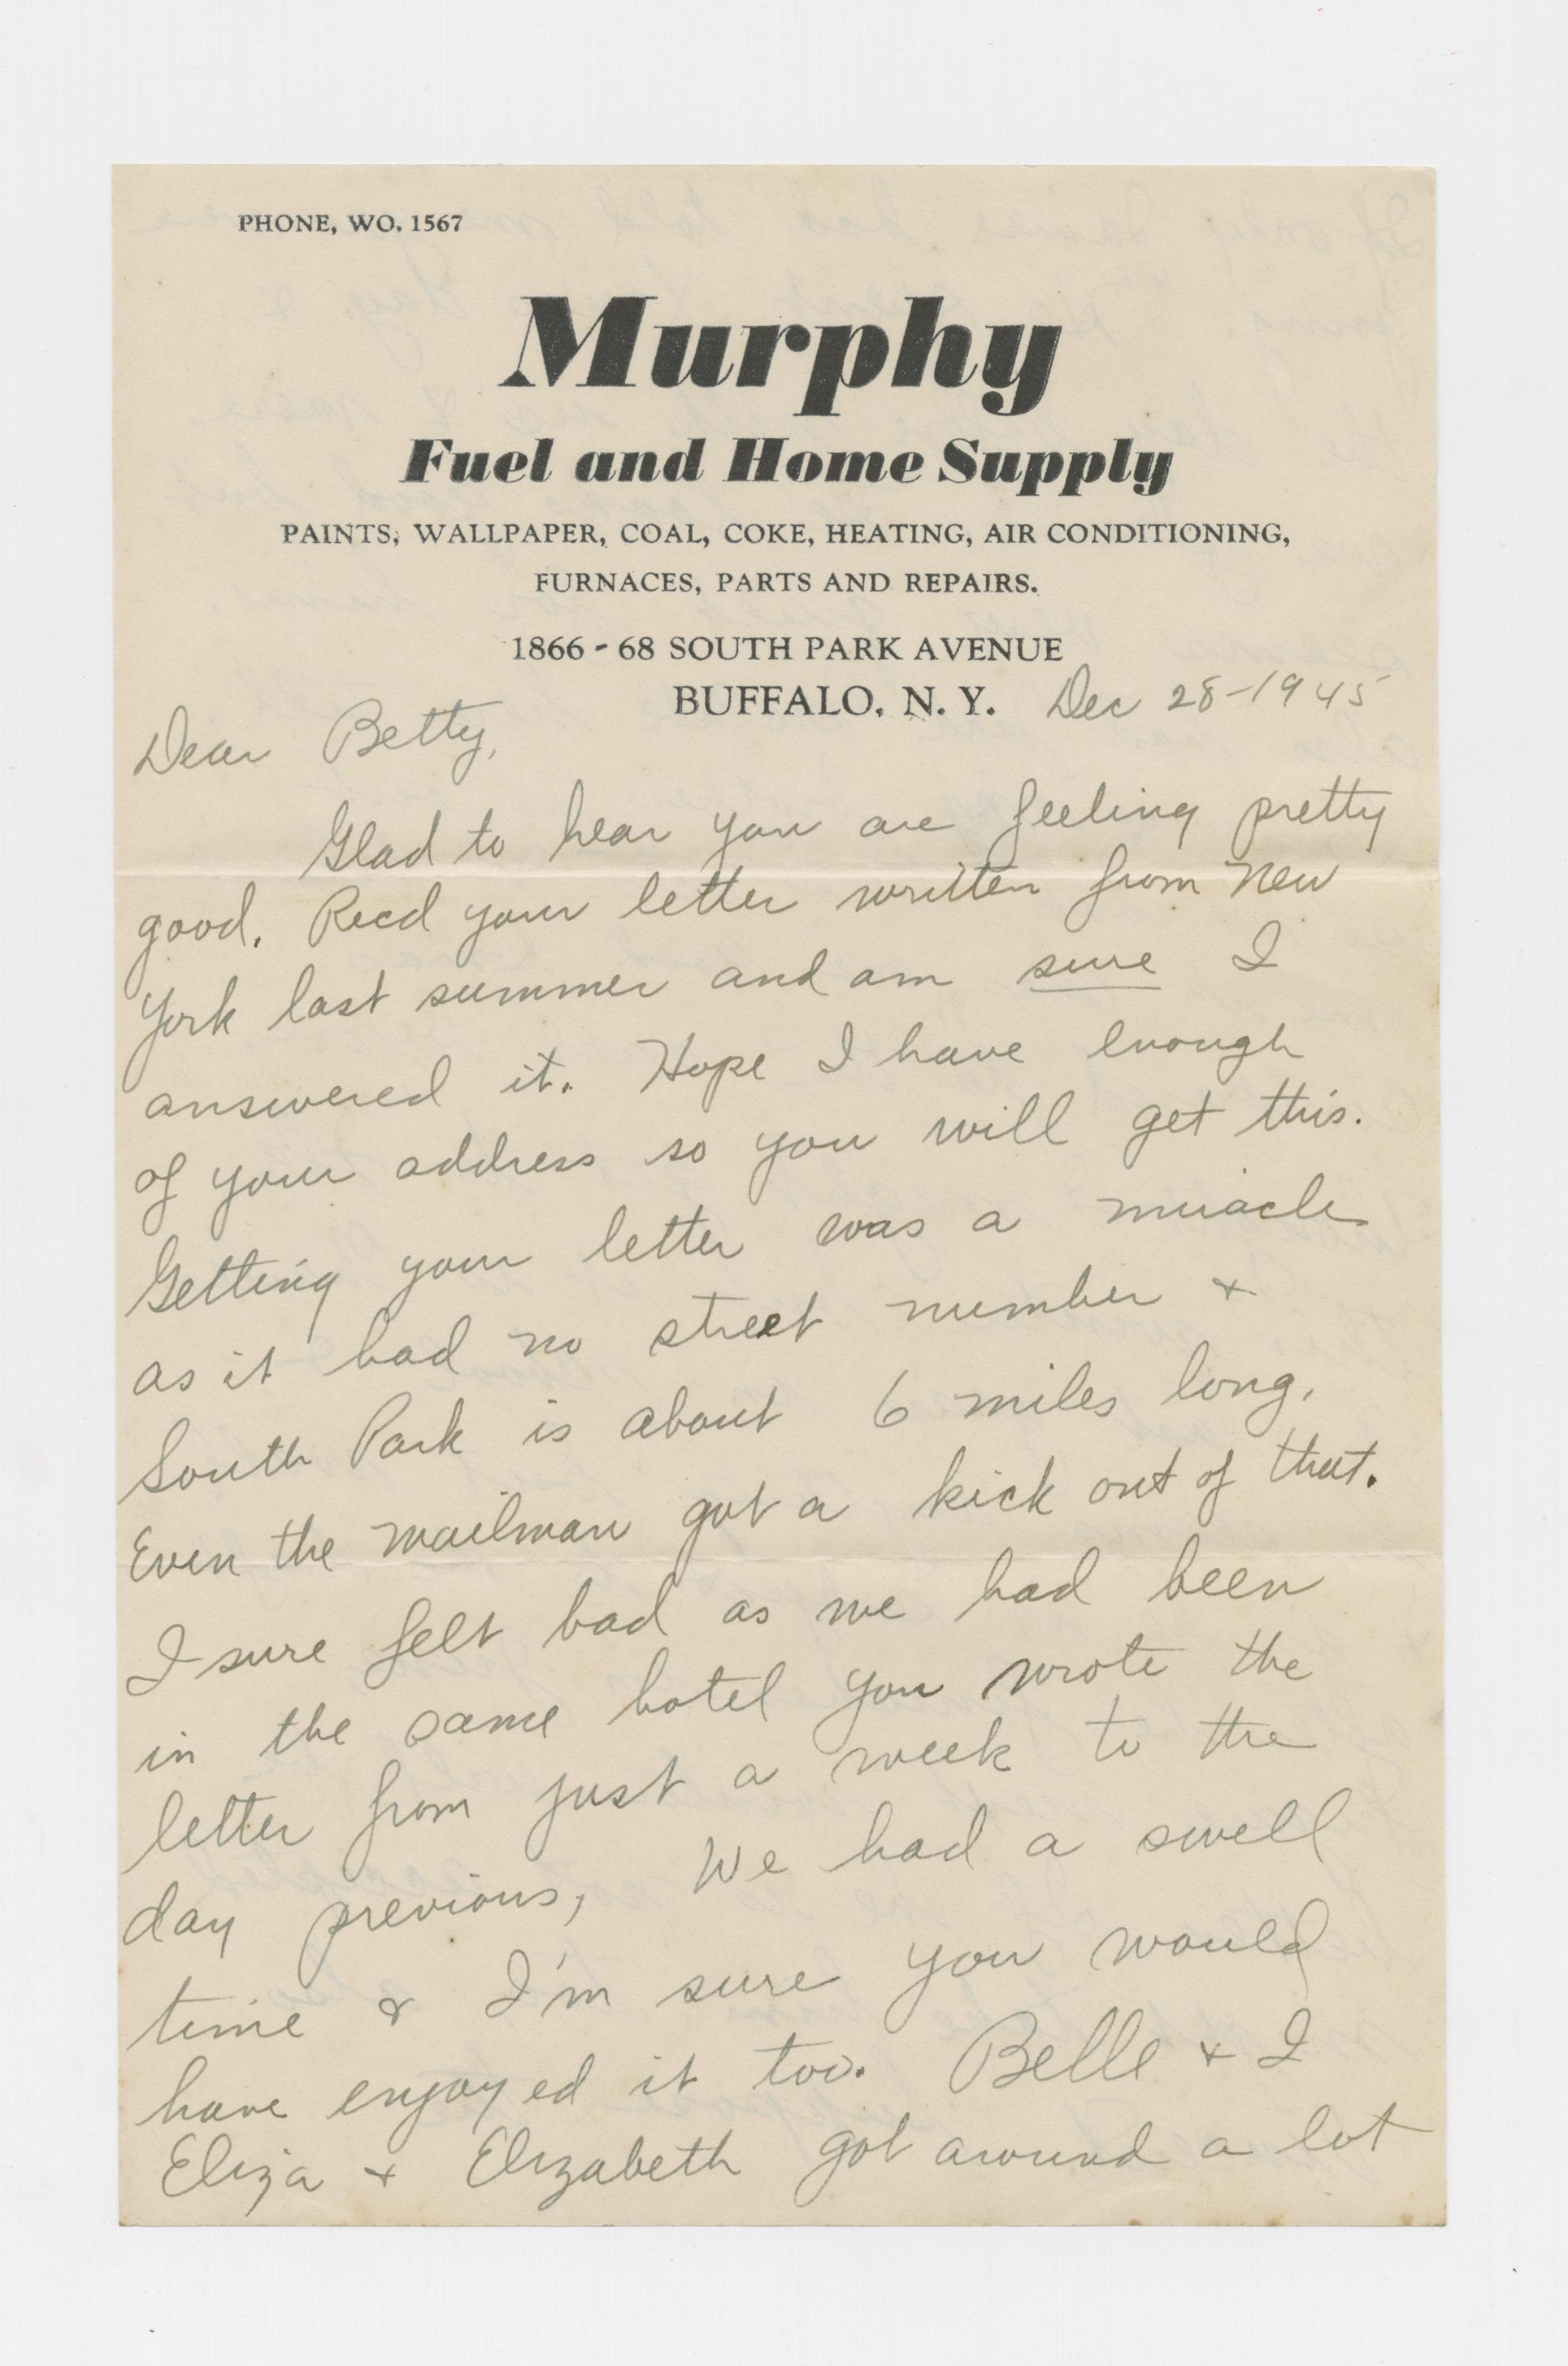 PHONE, WO. 1567
Murphy
Fuel and Home Supply
PAINTS, WALLPAPER, COAL, COKE, HEATING, AIR CONDITIONING,
FURNACES, PARTS AND REPAIRS.
1866 - 68 SOUTH PARK AVENUE
BUFFALO, N. Y. Dec 28-1945
Dear Betty,
Glad to hear you are feeling pretty
good. Recd your letter written from New
York last summer and am sure I
answered it. Hope I have enough
of your address so you will get this.
Getting your letter was a miracle
as it had no street number +
South Park is about 6 miles long.
Even the mailman got a kick out of that.
I sure felt bad as we had been
in the same hotel you wrote the
letter from just a week to the
day previous, We had a swell
time & I'm sure you would
have enjoyed it too. Belle + I
Eliza + Elizabeth got around a lot